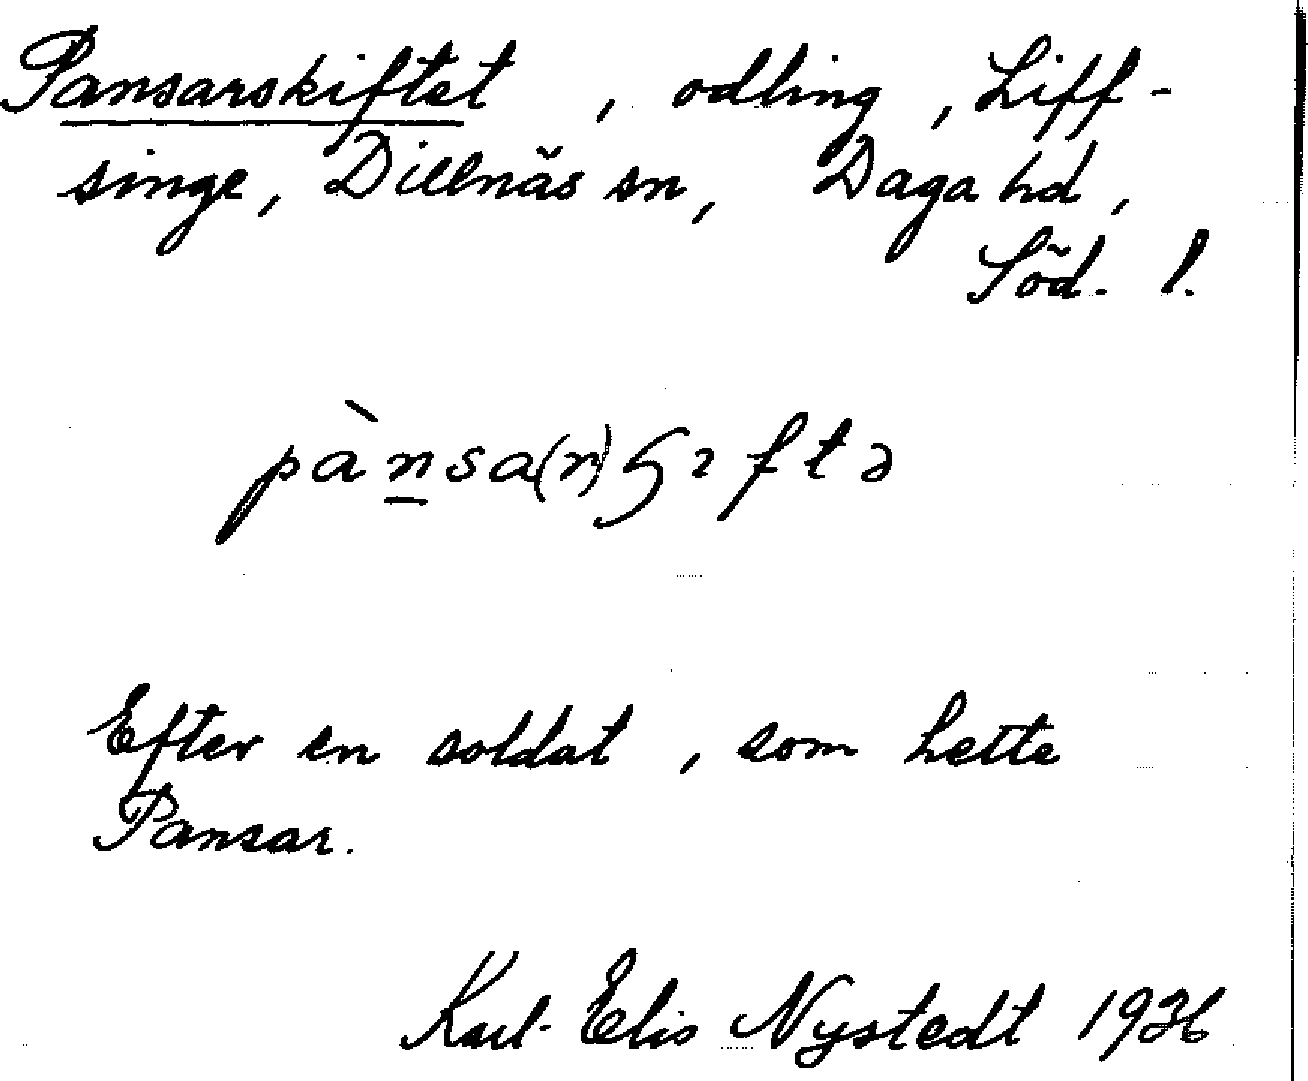 Pansarskiftet, odling, Liff-
singe, Dillnäs sn, Daga hd,
Söd. l.
pànsa(r)ʂıftə
Efter en soldat, som hette
Pansar.
Karl-Elis Nystedt 1936